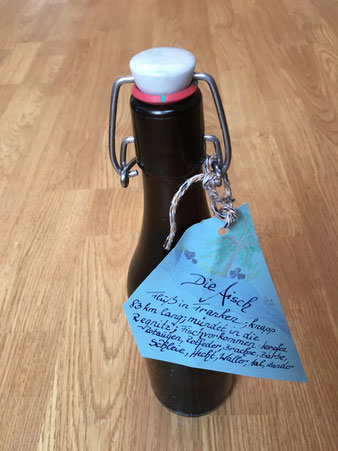 Die Aisch
Fluß in Franken, knapp
83 km lang; mündet in die
Regnitz; Fischvorkommen: Karpfen
Rotaugen, Rotfeder, Brachse, Barbe,
Schleie, Hecht, Waller, Aal, Zander